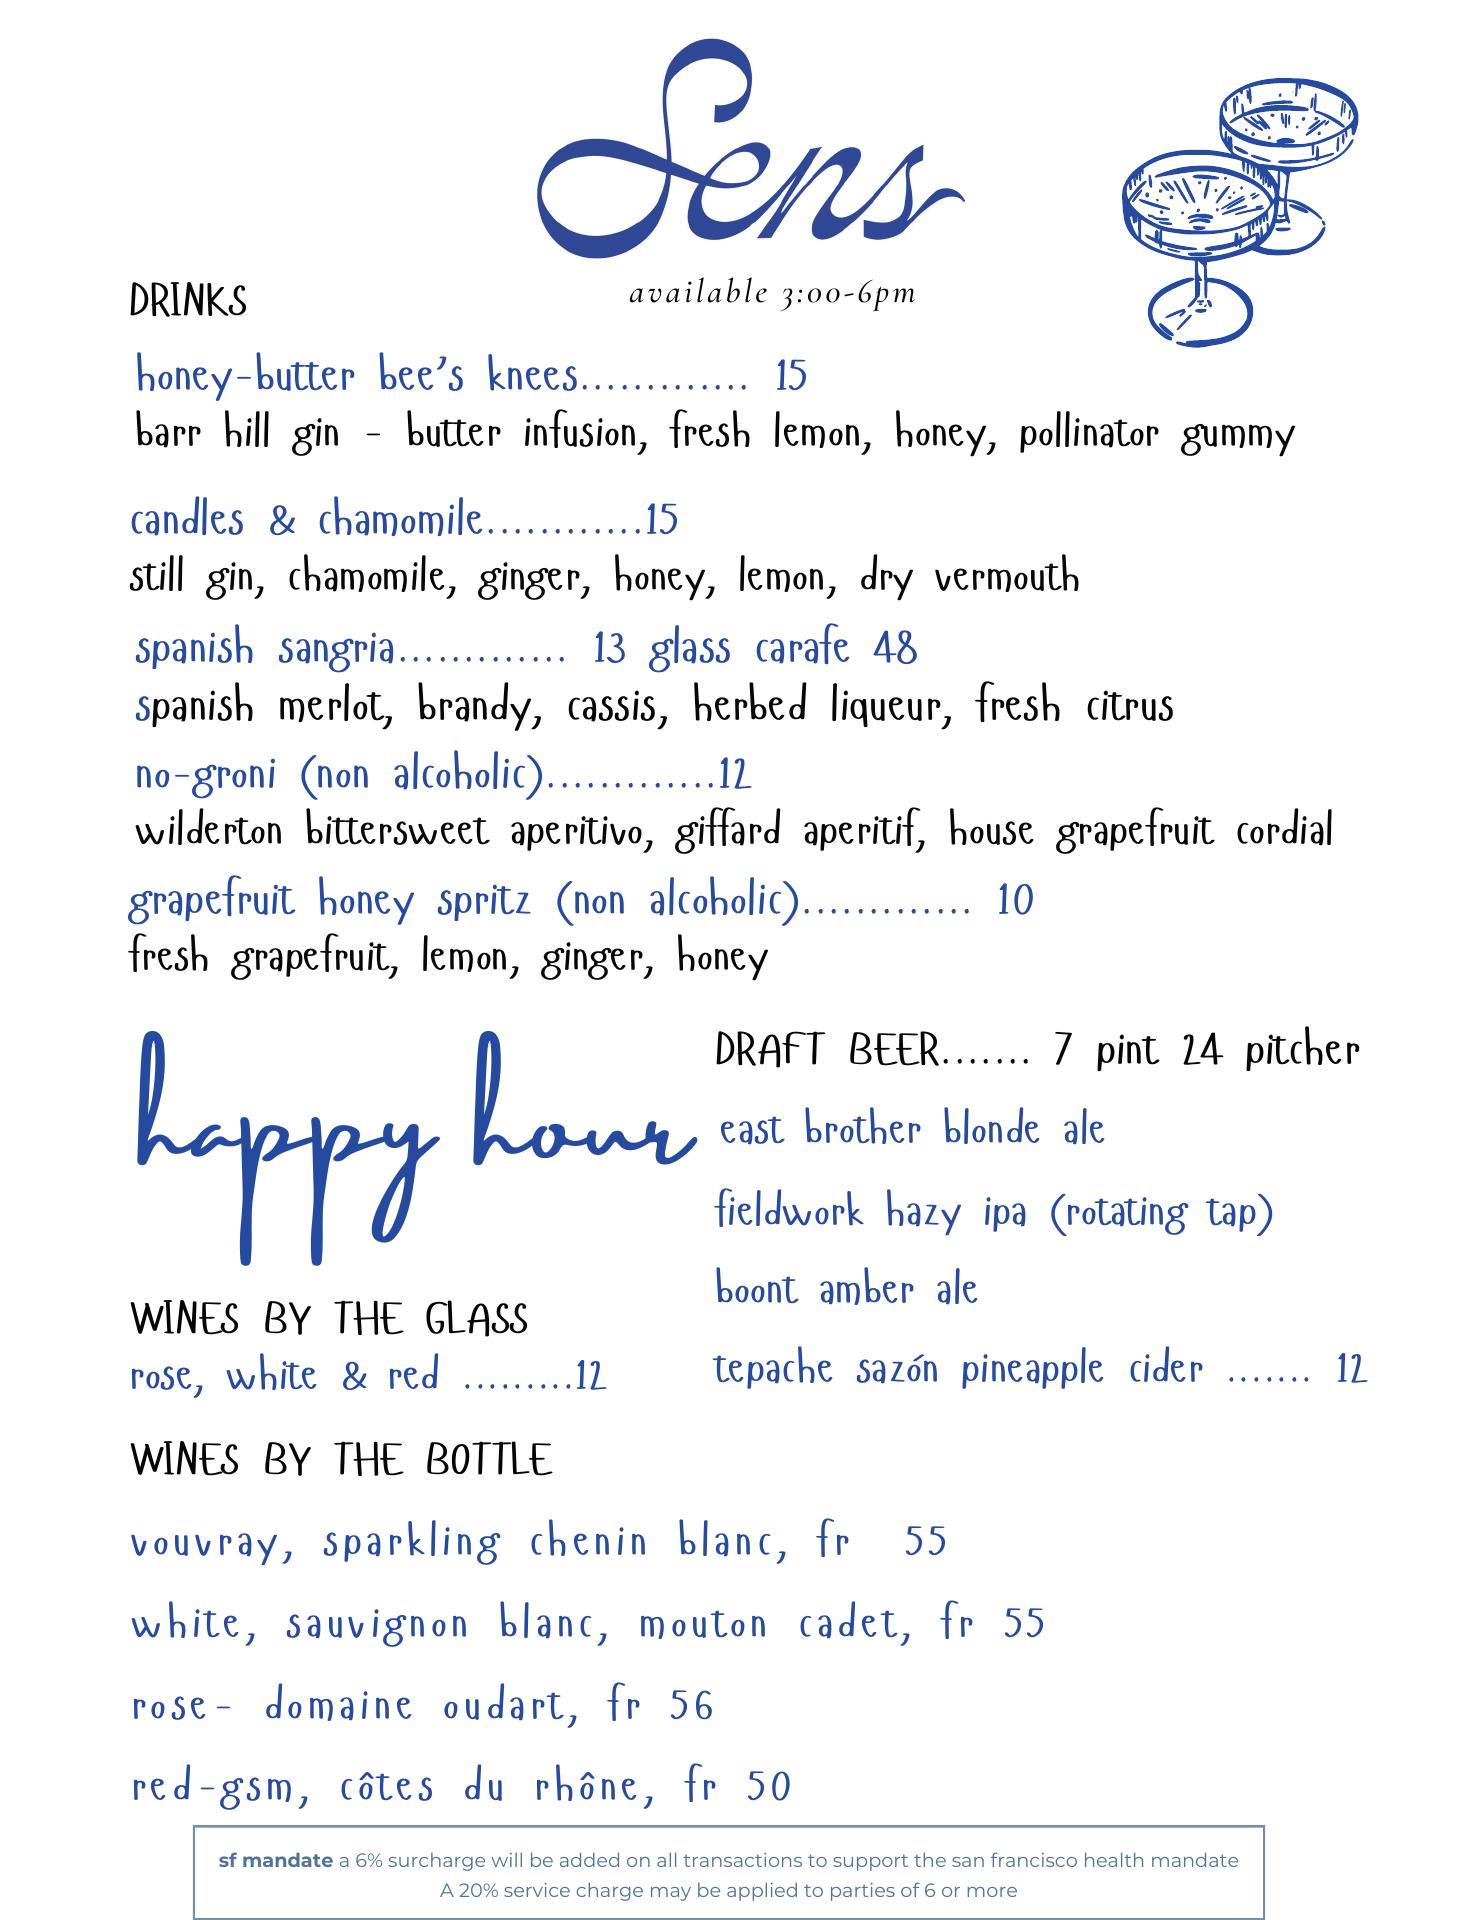 Sens
available 3:00-6pm
DRINKS
honey-butter bee's knees............. 15
barr hill gin - butter infusion, fresh lemon, honey, pollinator gummy
candles & chamomile............15
still gin, chamomile, ginger, honey, lemon, dry vermouth
spanish sangria............. 13 glass carafe 48
spanish merlot, brandy, cassis, herbed liqueur, fresh citrus
no-groni (non alcoholic).............12
wilderton bittersweet aperitivo, giffard aperitif, house grapefruit cordial
grapefruit honey spritz (non alcoholic)............. 10
fresh grapefruit, lemon, ginger, honey
happy hour
DRAFT BEER....... 7 pint 24 pitcher
east brother blonde ale
fieldwork hazy ipa (rotating tap)
boont amber ale
tepache sazón pineapple cider ....... 12
WINES BY THE GLASS
rose, white & red .........12
WINES BY THE BOTTLE
vouvray, sparkling chenin blanc, fr 55
white, sauvignon blanc, mouton cadet, fr 55
rose- domaine oudart, fr 56
red-gsm, côtes du rhône, fr 50
sf mandate a 6% surcharge will be added on all transactions to support the san francisco health mandate
A 20% service charge may be applied to parties of 6 or more